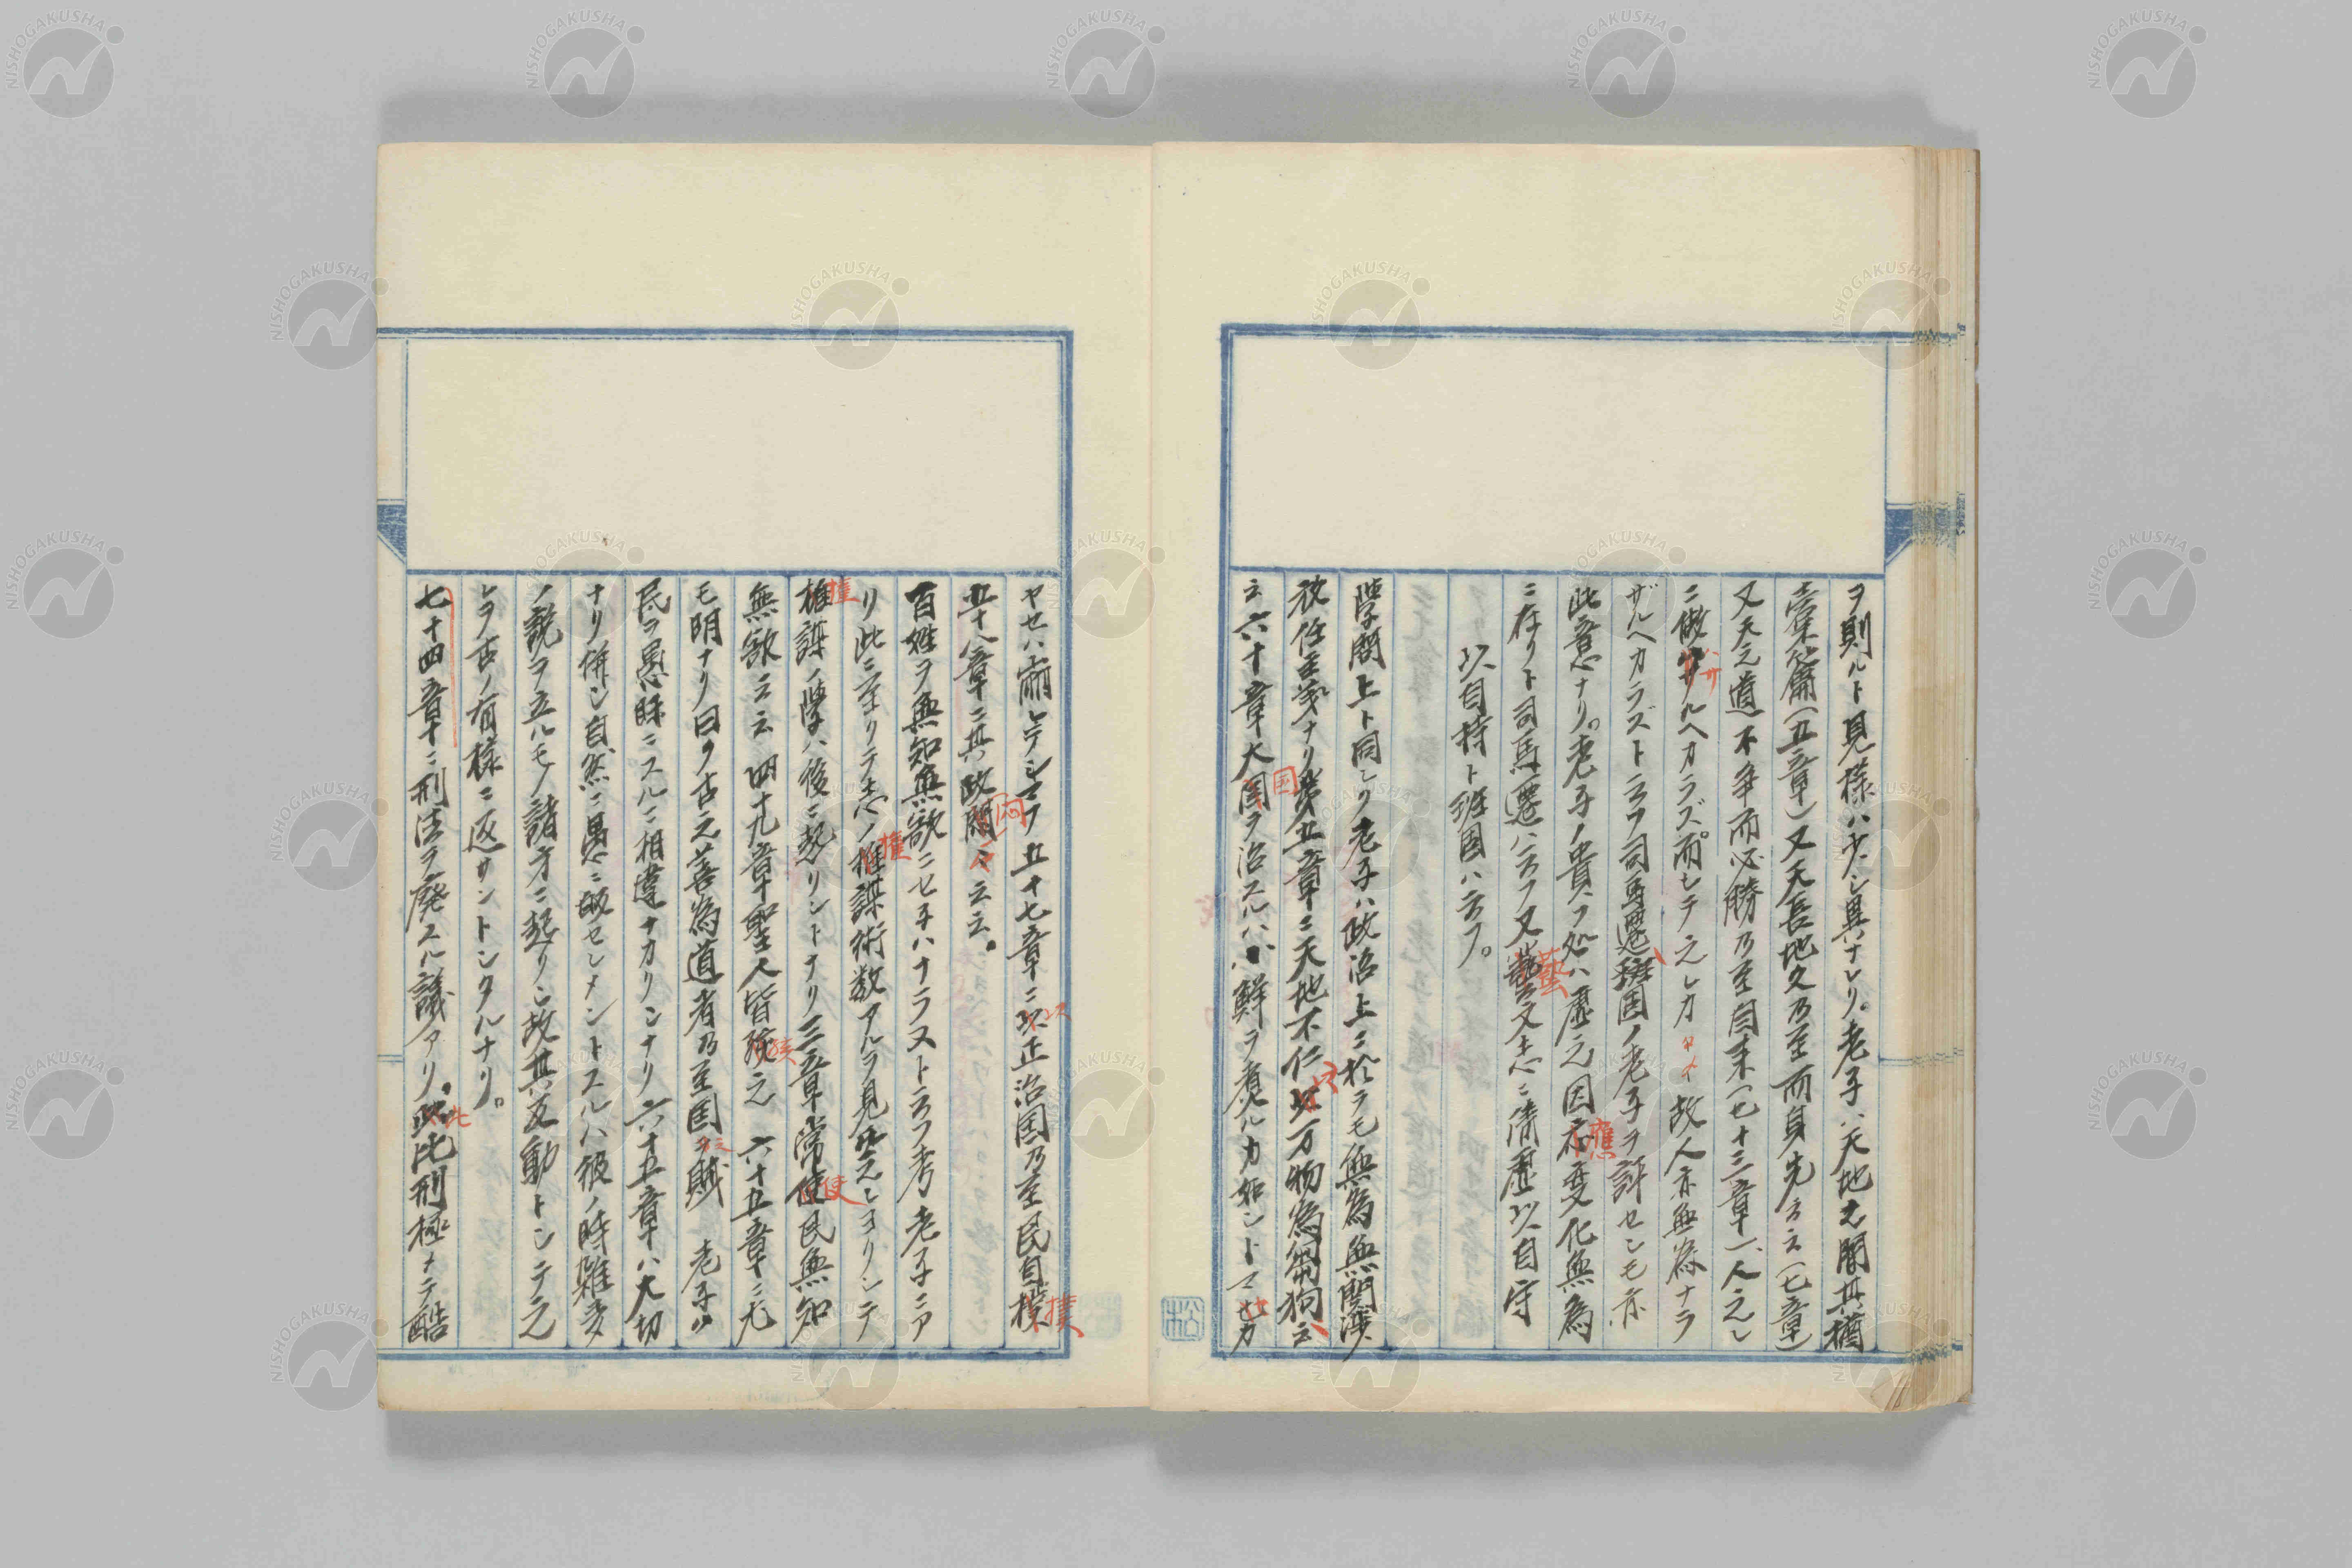 ヲ則ルト見様ハ少シ異ナレリ。老子ハ天地之間其猶
槖籥(五章)又天長地久乃至而身先云云(七章)
又天之道不争而必勝乃至自来(七十三章)人之レ
ニ倣ハサルヘカラズ。而シテ之レカタメ故人亦無為ナラ
ザルヘカラズト云フ司馬遷班固ノ老子ヲ評センモ亦
此意ナリ。老子ノ貴ヒフ処ハ虚之因応應変化無為
ニ在リト司馬遷ハ云フ又藝文志ニ清虚以自守
以自持ト班固ハ云フ。
学問上ト同シク老子ハ政治上ニ於テモ無為無関渉
放任主義ナリ第五章ニ天地不仁以万物為芻狗云
云六十章大国国ヲ治スルハ小鮮ヲ煮ルカ如シトマセカ
ヤセハ崩レテシマフ五十七章ニ以正治国乃至民自樸樸
五十八章ニ其政悶悶々云云。
百姓ヲ無知無欲ニセネハナラヌト云フ考老子ニア
リ此ニ至リテ志ノ権權謀術数アルヲ見ル之レヨリシテ
権權謀ノ学ハ後ニ起リシトナリ三章常使使民無知
無欲云云 四十九章聖人皆孩孩之 六十五章ニ尤
モ明ナリ曰ク古之善為道者乃至国之賊 老子ハ
民ヲ愚昧ニスルニ相違ナカリシナリ六十五章ハ大切
ナリ併シ自然ニ愚ニ破セシメントスルハ彼ノ時雑多
ノ説ヲ立ルモノ諸方ニ起リシ故其反動トシテ之
レヲ古ノ有様ニ返サントシタルナリ。
七十四章ニ刑法ヲ廃スル議アリ。此此刑極メテ酷
NISHOGAKUSHA